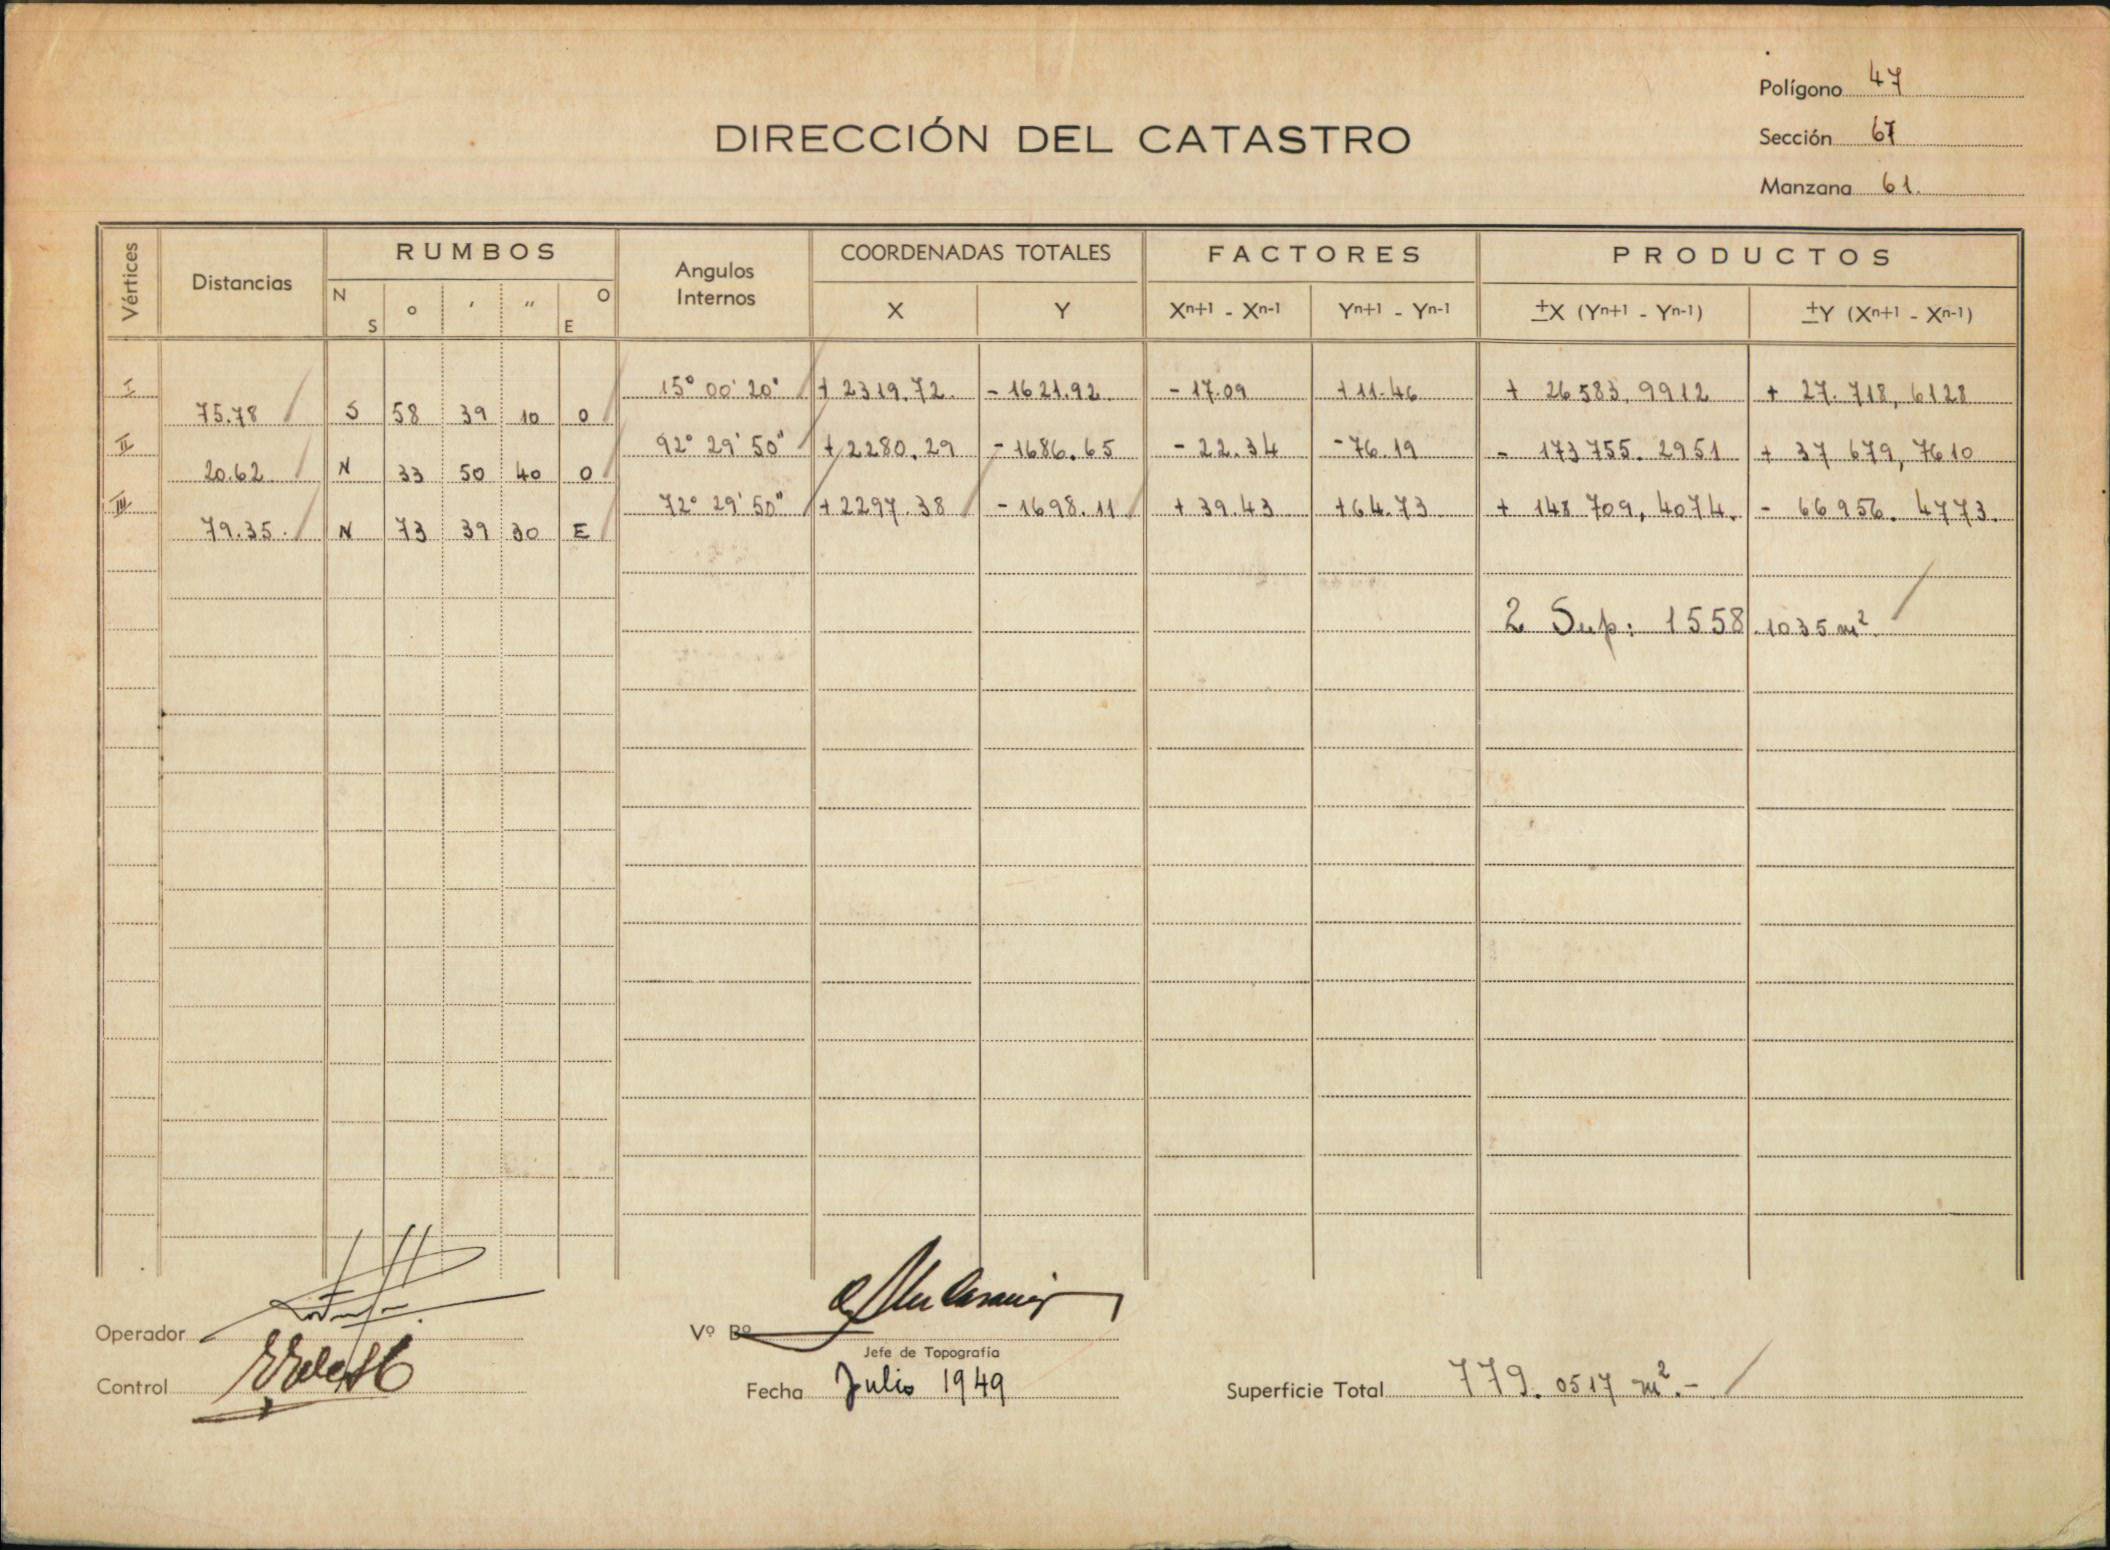 Polígono 47
DIRECCIÓN DEL CATASTRO
Sección 67
Manzana 61.
Vértices Distancias RUMBOS Angulos Internos COORDENADAS TOTALES FACTORES PRODUCTOS
N S ° ' " O E X Y Xn+1 - Xn-1 Yn+1 - Yn-1 ±X (Yn+1 - Yn-1) ±Y (Xn+1 - Xn-1)
I 15° 00' 20" + 2319.72. - 1621.92. - 17.09 + 11.46 + 26583,9912 + 27.718,6128
75.78 S 58 39 10 O
II 92° 29' 50" + 2280.29 - 1686.65 - 22.34 - 76.19 - 173755.2951 + 37679,7610
20.62 N 33 50 40 O
III 72° 29' 50" + 2297.38 - 1698.11 + 39.43 + 64.73 + 148709,4074. - 66956.4773.
79.35. N 73 39 30 E
2 Sup: 1558.1035 m².
Operador
Vº Bº
Jefe de Topografía
Control
Fecha Julio 1949
Superficie Total 779.0517 m².-